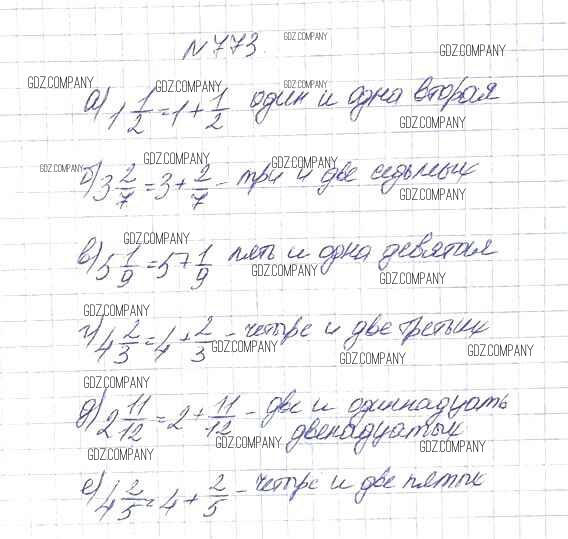 N 773.
GDZ.COMPANY
GDZ.COMPANY
GDZ.COMPANY GDZ.COMPANY GDZ.COMPANY
а) 1 1/2 = 1 + 1/2 один и одна вторая
GDZ.COMPANY
GDZ.COMPANY GDZ.COMPANY GDZ.COMPANY
б) 3 2/7 = 3 + 2/7 - три и две седьмых
GDZ.COMPANY
GDZ.COMPANY
в) 5 1/9 = 5 + 1/9 пять и одна девятая
GDZ.COMPANY GDZ.COMPANY
GDZ.COMPANY
г) 4 2/3 = 4 + 2/3 - четыре и две третьих
GDZ.COMPANY GDZ.COMPANY GDZ.COMPANY
GDZ.COMPANY
д) 2 11/12 = 2 + 11/12 - две и одиннадцать
двенадцатых
GDZ.COMPANY GDZ.COMPANY GDZ.COMPANY
е) 4 2/5 = 4 + 2/5 - четыре и две пятых